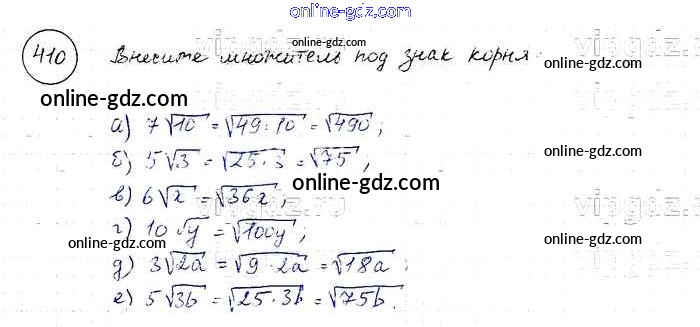 online-gdz.com
410 Внесите множитель под знак корня:
online-gdz.com
online-gdz.com
а) 7√10 = √49·10 = √490;
б) 5√3 = √25·3 = √75;
online-gdz.com
в) 6√x = √36x;
online-gdz.com
г) 10√y = √100y;
online-gdz.com
online-gdz.com
д) 3√2a = √9·2a = √18a;
е) 5√3b = √25·3b = √75b.
online-gdz.com